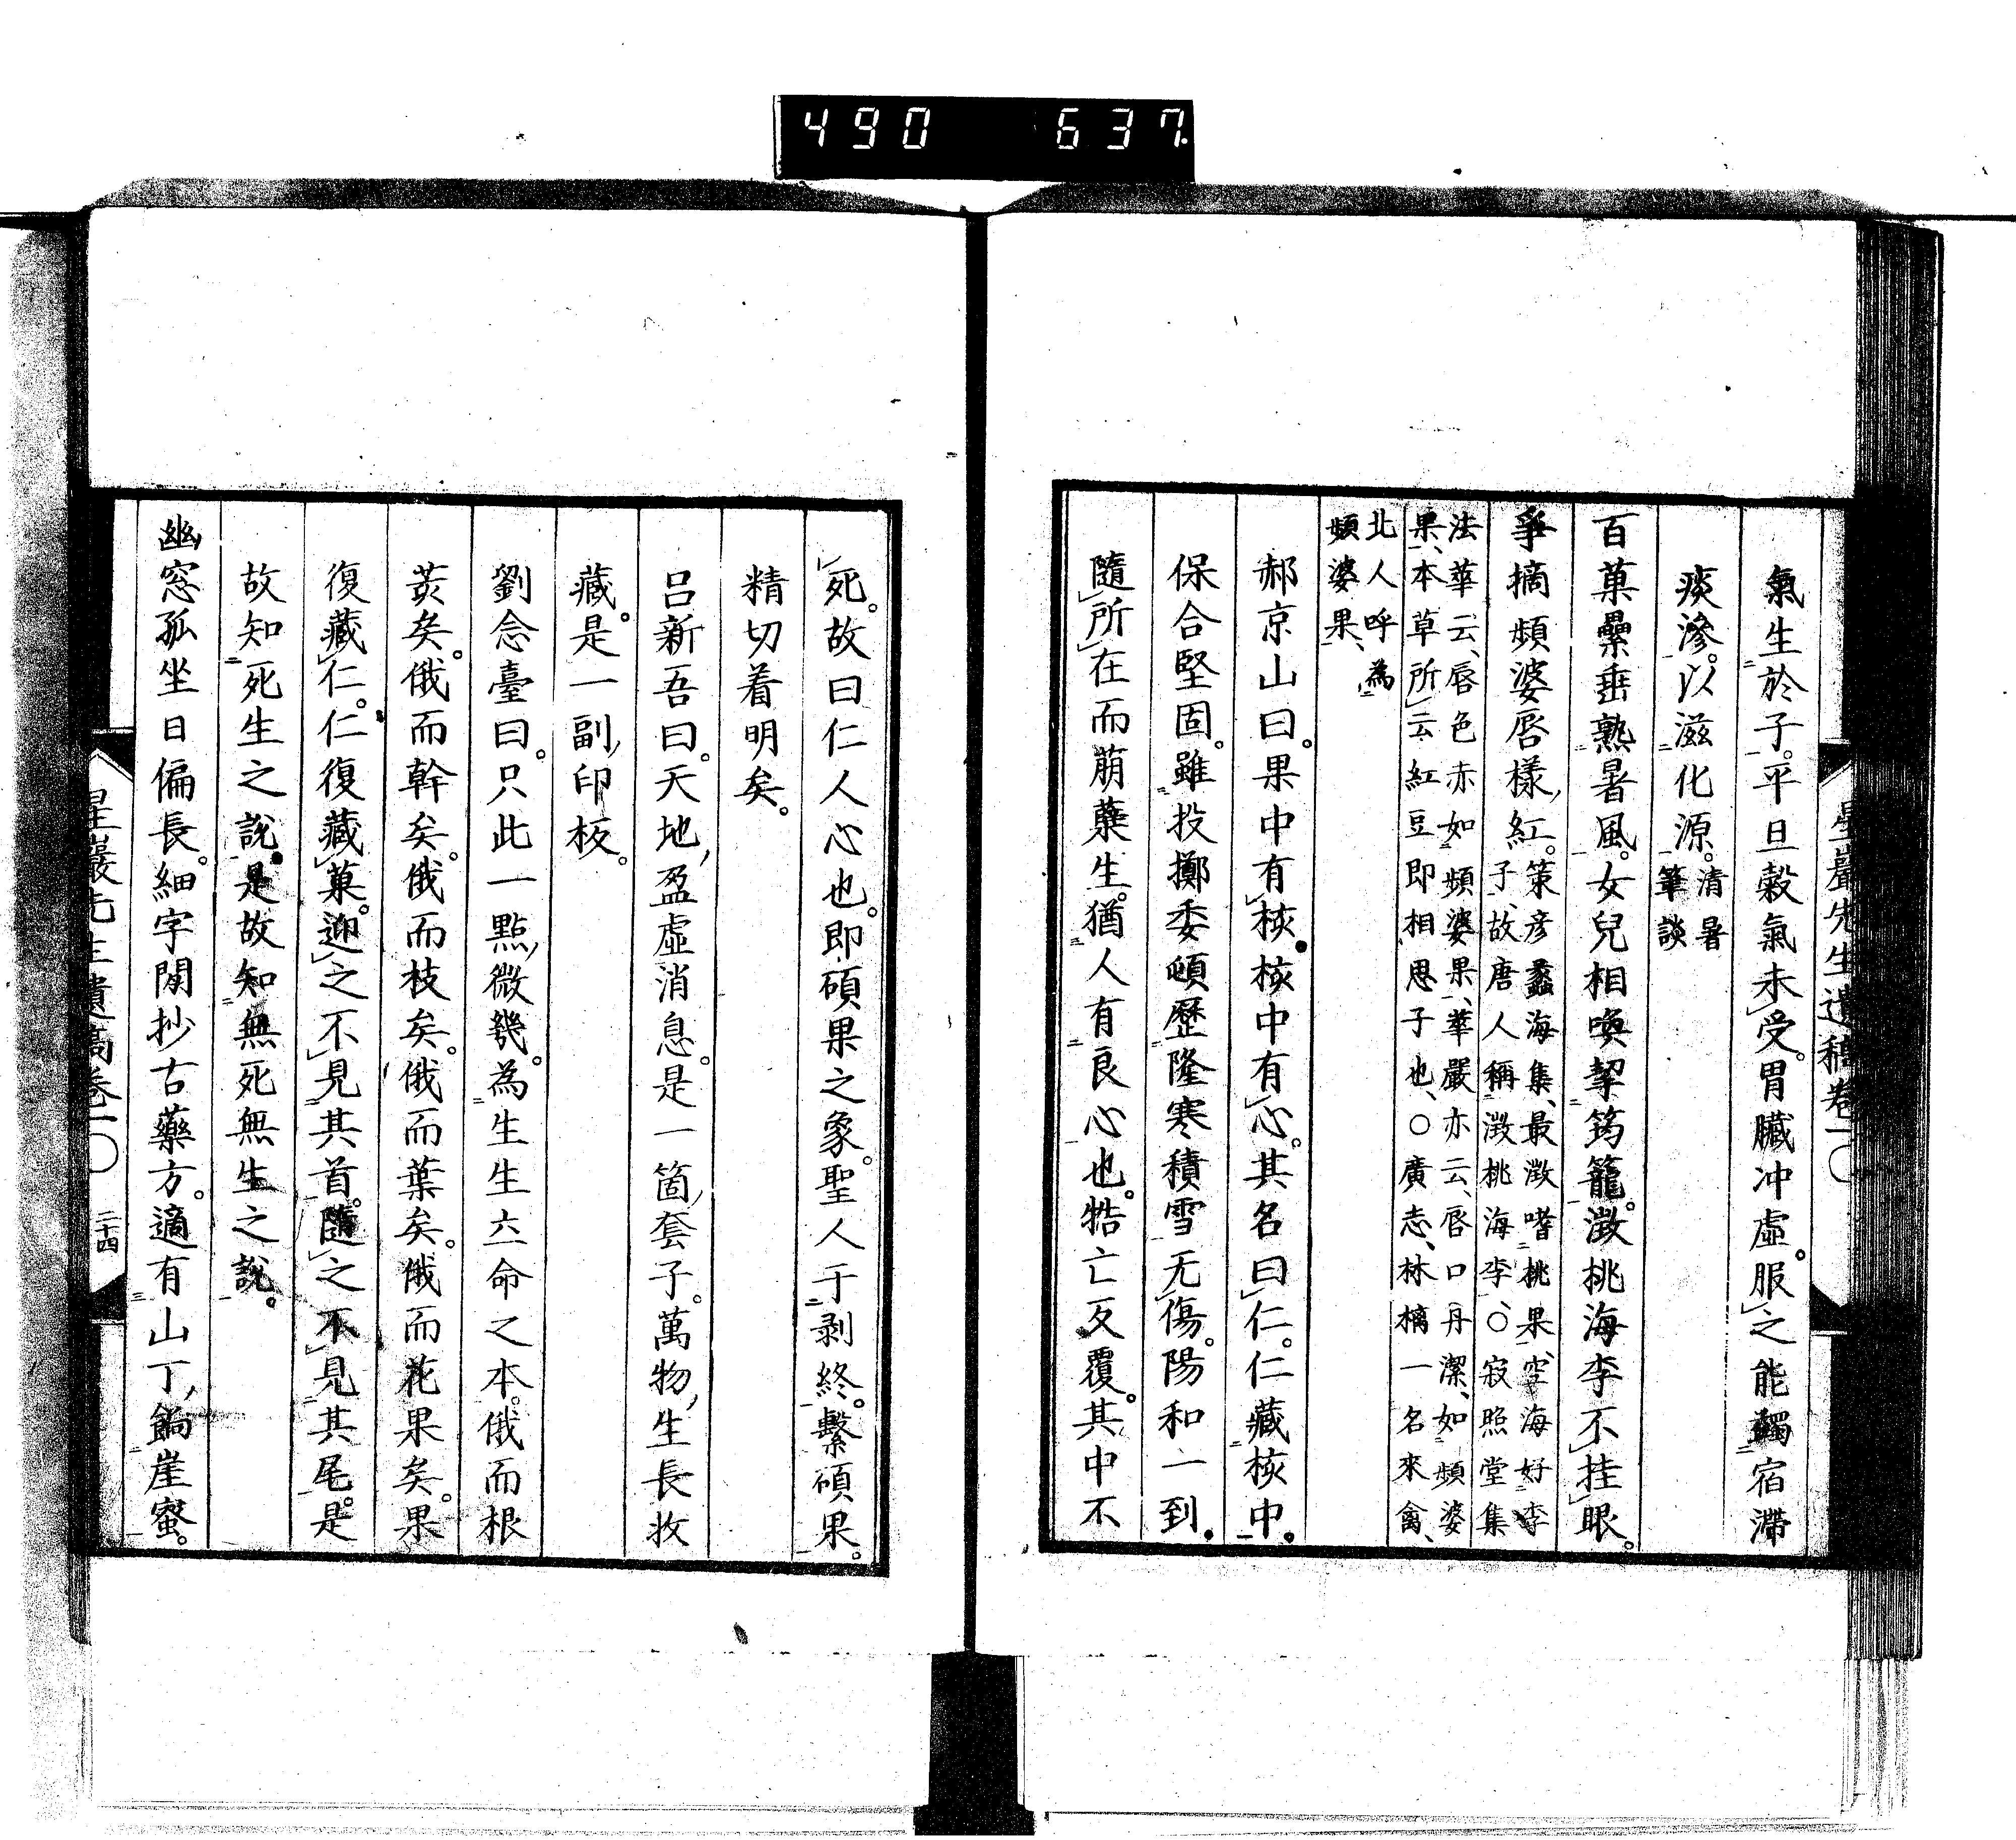 490 637
星巖先生遺稿卷一〇
氣生於子。平旦穀氣未受。胃臟冲虛。服之能蠲宿滯
痰滲。以滋化源。清暑筆談
百菓纍垂熟暑風。女兒相喚挈筠籠。澂桃海李不挂眼。
爭摘頻婆唇樣紅。策彥蠡海集、最澂嗜桃果、空海好李
子、故唐人稱澂桃海李、〇寂照堂集
法華云、唇色赤如頻婆果、華嚴亦云、唇口丹潔、如頻婆
果、本草所云紅豆即相思子也、〇廣志、林檎一名來禽、
北人呼為
頻婆果、
郝京山曰。果中有核。核中有心。其名曰仁。仁藏核中。
保合堅固。雖投擲委頓歷隆寒積雪无傷。陽和一到。
隨所在而萠蘖生。猶人有良心也。牿亡反覆。其中不
死。故曰仁人心也。即碩果之象。聖人于剥終。繫碩果。
精切着明矣。
呂新吾曰。天地盈虛消息。是一箇套子。萬物生長收
藏。是一副印板。
劉念臺曰。只此一點微幾。為生生立命之本。俄而根
荄矣。俄而幹矣。俄而枝矣。俄而葉矣。俄而花果矣。果
復藏仁。仁復藏菓。迎之不見其首。隨之不見其尾。是
故知死生之說。是故知無死無生之說。
幽窓孤坐日偏長。細字閑抄古藥方。適有山丁餉崖蜜。
星巖先生遺稿卷一〇 二十四